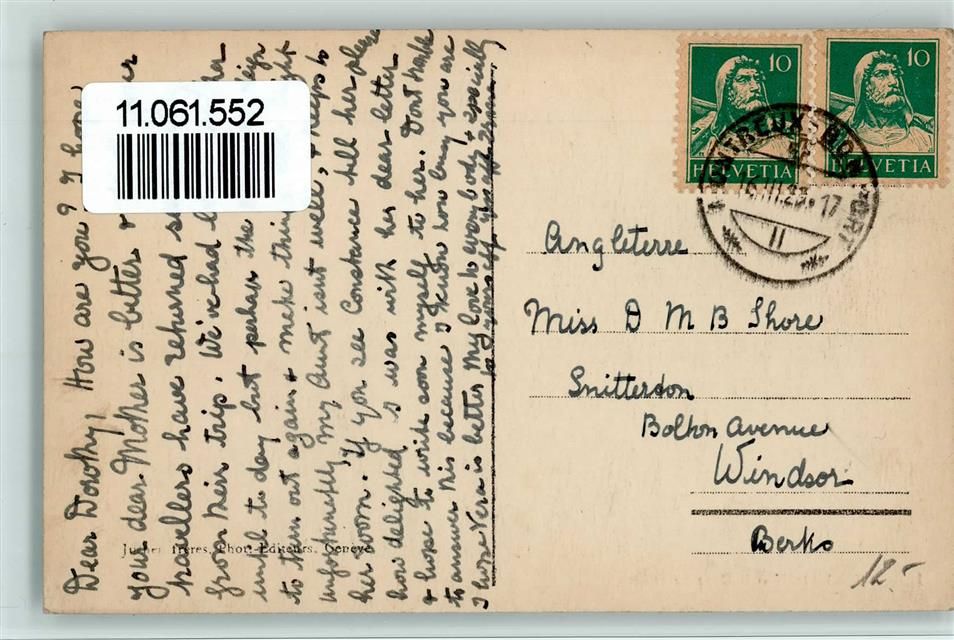 11.061.552
Dear Dorothy, How are you? I hope
your dear Mother is better &
travellers have returned
from their trip. We've had
until to day but perhaps the
to turn out again & make
unfortunately my Aunt isn't well, & keeps to
her room. If you see Constance tell her please
how delighted I was with her dear letter
& hope to write soon myself to her. Don't trouble
to answer this because I know how busy you are
I hope Vera is better My love to everybody & especially
to yourself
Juchet Frères, Phot.-Editeurs, Genève
10
10
HELVETIA
HELVETIA
MONTREUX-BON PORT
17
II
Angleterre
Miss D M B Shore
Snitterdon
Bolton Avenue
Windsor
Berks
12.-